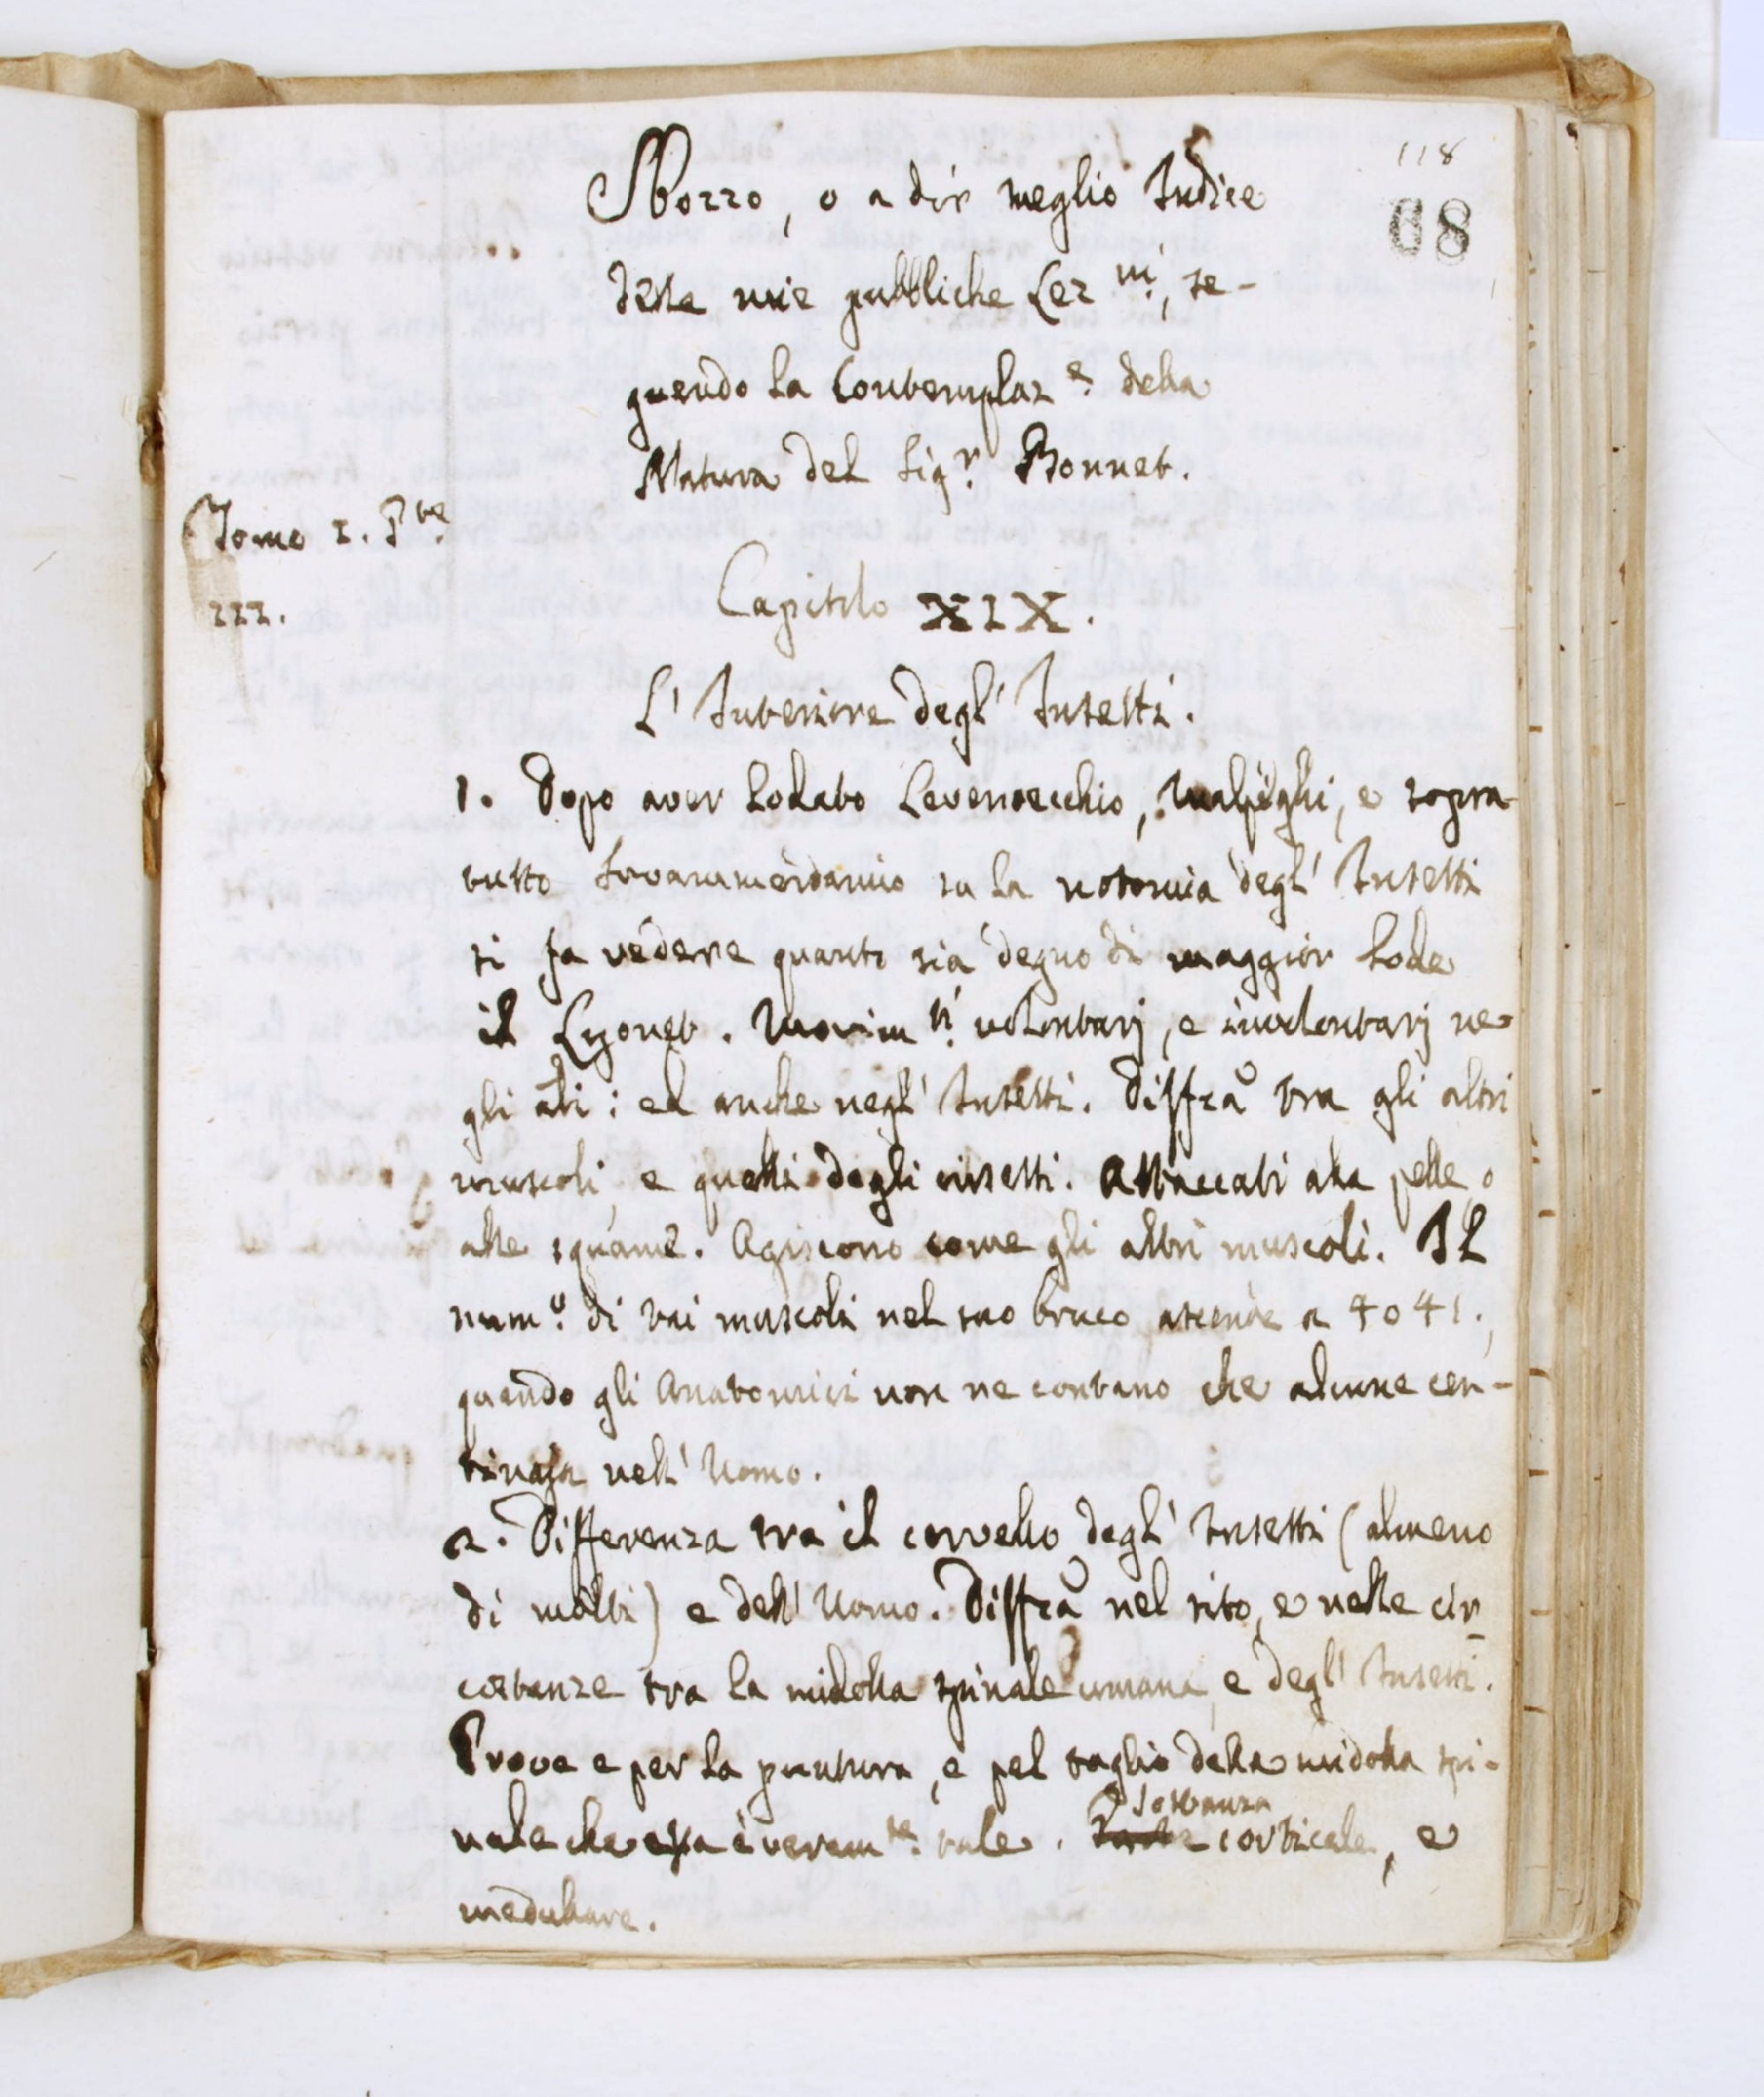 118
68
Sbozzo, o a dir meglio Indice
delle mie pubbliche Lez.ni, se-
guendo la Contemplaz.e della
Natura del Sig.r Bonnet.
Tomo I. P.te
III.
Capitolo XIX.
L' Interiore degl' Insetti.
1. Dopo aver lodato Levenoecchio, Malpighi, e sopra
tutto Swammerdamio su la notomia degl' Insetti
si fa vedere quanto sia degno di maggior lode
il Lyonet. Movim.ti volontarj, e involontarj ne
gli ali: ed anche negl' Insetti. Diffza tra gli altri
muscoli, e quelli degli insetti. Attaccati alla pelle, o
alle squame. Agiscono come gli altri muscoli. Il
num.o di tai muscoli nel suo bruco ascende a 4041.,
quando gli Anatomici non ne contano che alcune cen-
tinaja nell' Uomo.
2. Differenza tra il cervello degl' Insetti (almeno
di molti) e dell' Uomo. Diffza nel sito, e nelle cir-
costanze tra la midolla spinale umana, e degl' Insetti.
Prove e per la puntura, e pel taglio della midolla spi-
nale che essa è veram.te tale. Sostanza corticale, e
medullare.